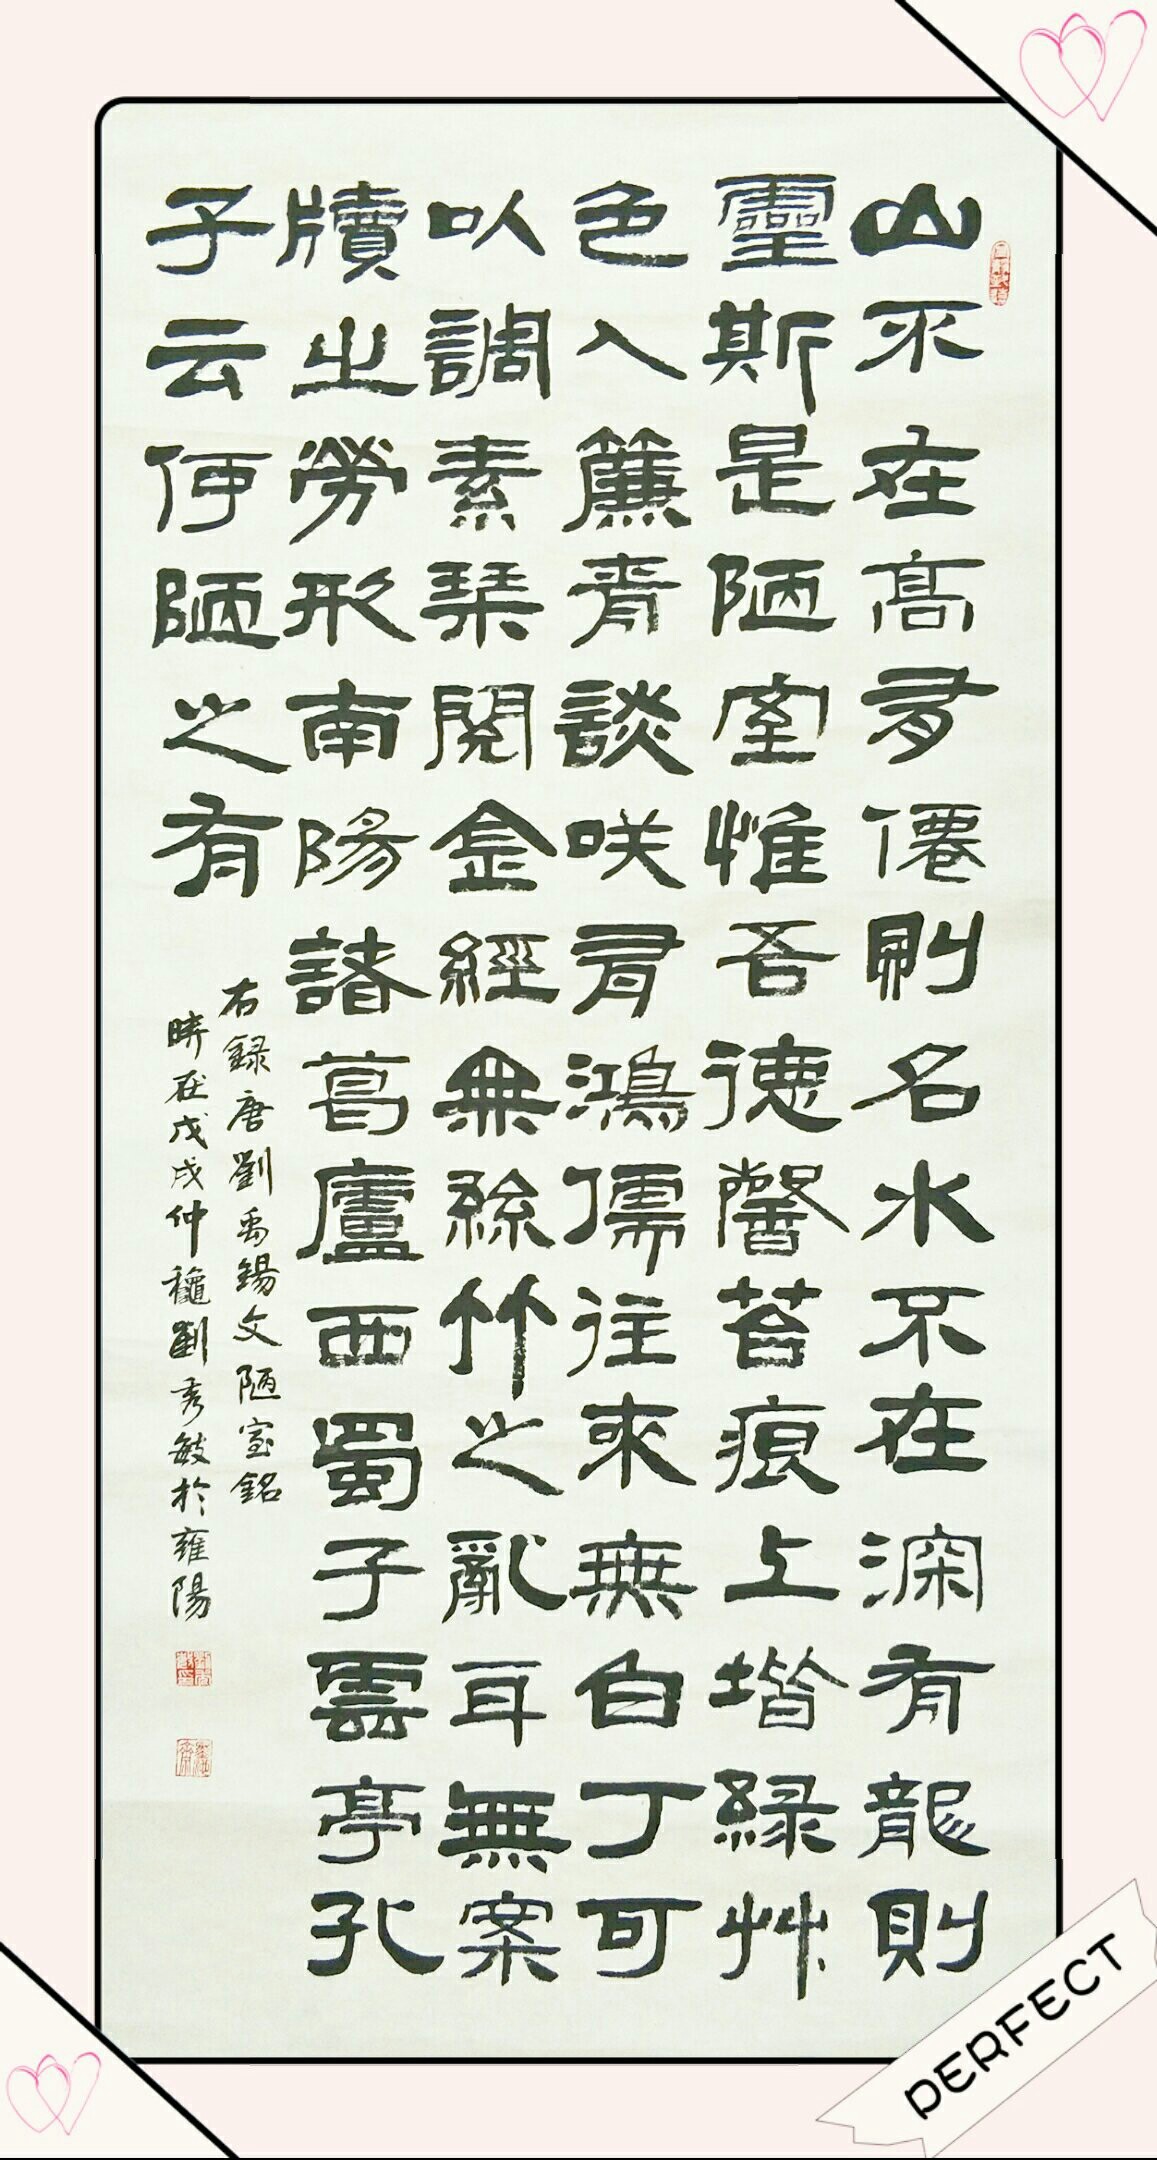 山不在高有僊則名水不在深有龍則
靈斯是陋室惟吾德馨苔痕上堦緑艸
色入簾青談咲有鴻儒往來無白丁可
以調素琴閱金經無絲竹之亂耳無案
牘之勞形南陽諸葛廬西蜀子雲亭孔
子云何陋之有
右録唐劉禹錫文陋室銘
時在戊戌仲龝劉秀敏於雍陽
PERFECT